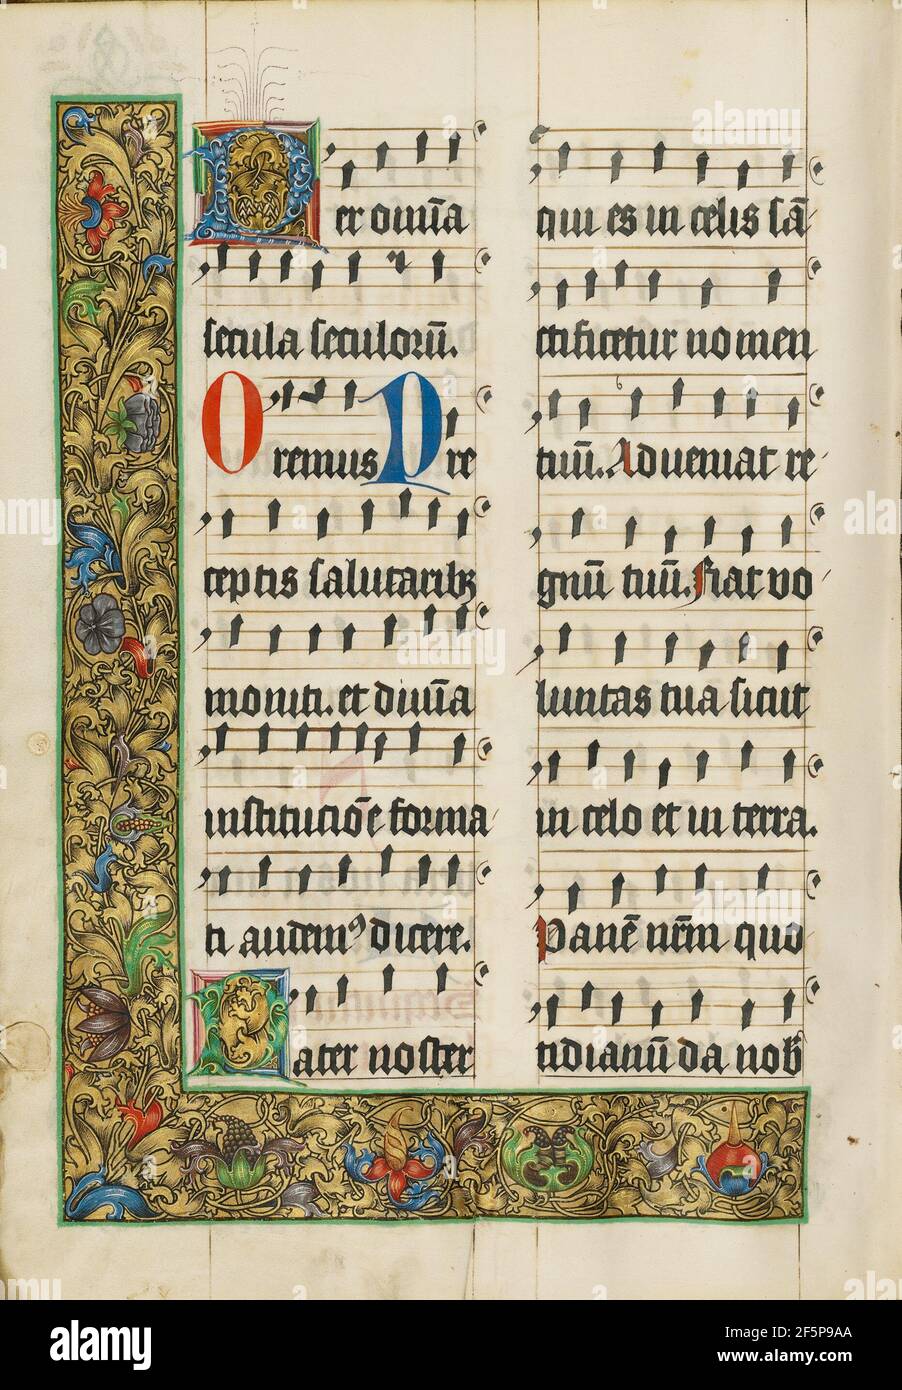 Per om̄ia
secula seculorū.
Oremus Pre
ceptis salutaribꝫ
moniti. et diuīa
institucioē forma
ti audemꝰ dicere.
Pater noster
qui es in celis sā
ctificetur nomen
tuū. Adueniat re
gnū tuū. Fiat vo
luntas tua sicut
in celo et in terra.
Panē nēm quo
tidianū da nob̄
alamy
Image ID: 2F5P9AA
www.alamy.com